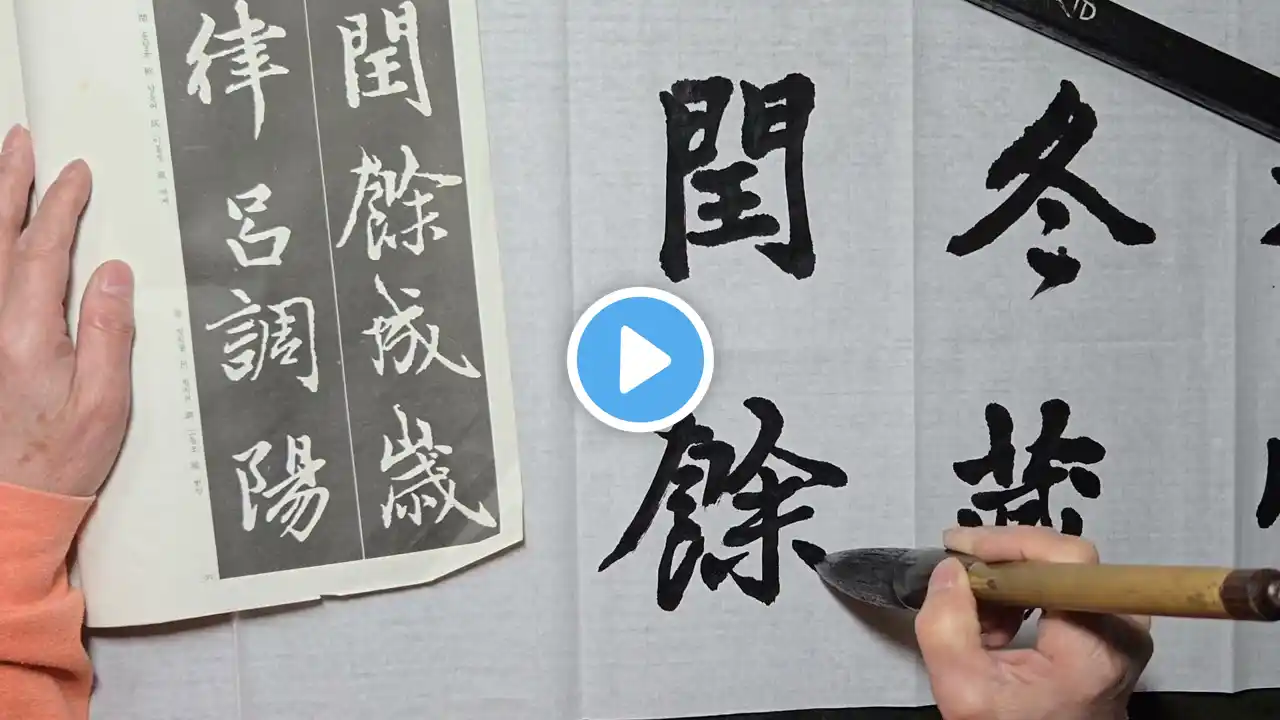 冬藏
閏餘
閏餘成歲
律呂調陽